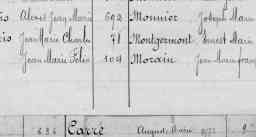 Alexis Jean Marie 592 Monnier Joseph Marie
Jean Marie Charles 71 Montgermont Ernest Marie
Jean Marie Félix 104 Morain Jean Marie
636 Carré Auguste